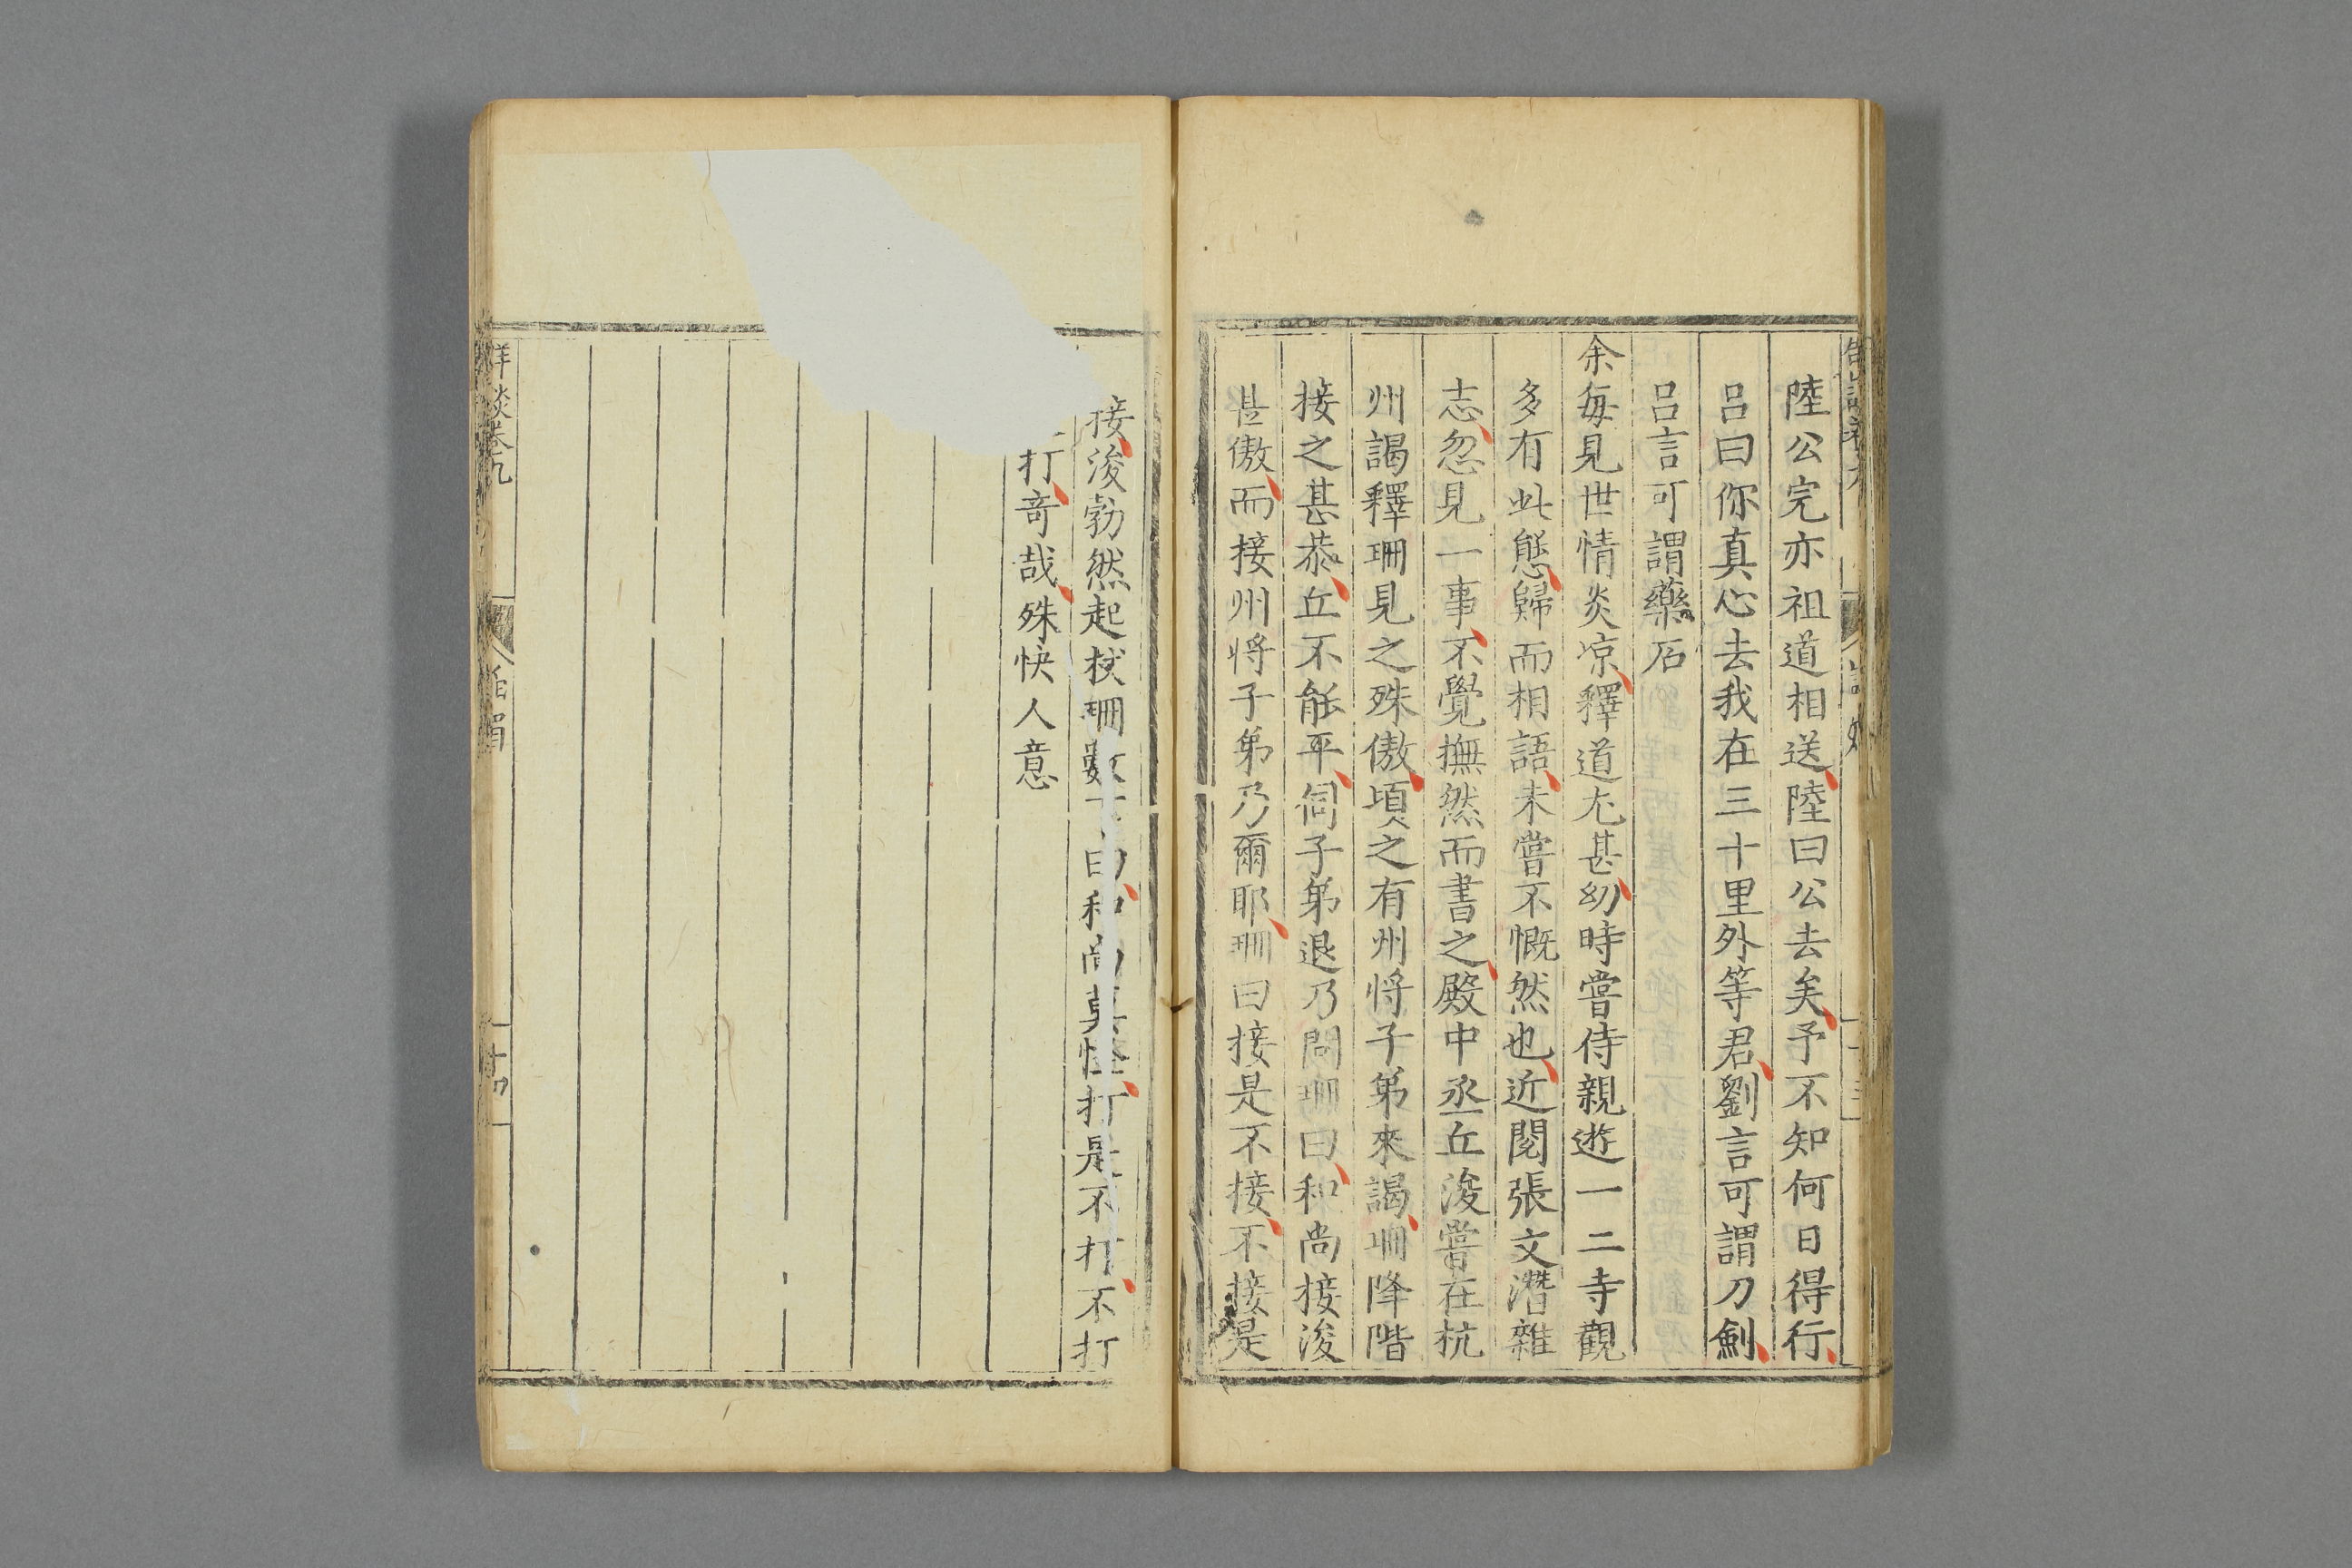 陸公完亦祖道相送陸曰公去矣予不知何日得行
呂曰你真心去我在三十里外等君劉言可謂刀劍
呂言可謂藥石
余每見世情炎凉釋道尤甚幼時嘗侍親遊一二寺觀
多有此態歸而相語未嘗不慨然也近閱張文潛雜
志忽見一事不覺撫然而書之殿中丞丘浚嘗在杭
州謁釋珊見之殊傲頃之有州將子弟來謁珊降階
接之甚恭丘不能平伺子弟退乃問珊曰和尚接浚
甚傲而接州將子弟乃爾耶珊曰接是不接不接是
接浚勃然起杖珊數下曰和尚莫怪打是不打不打
打竒哉殊快人意
詳談卷九
十四